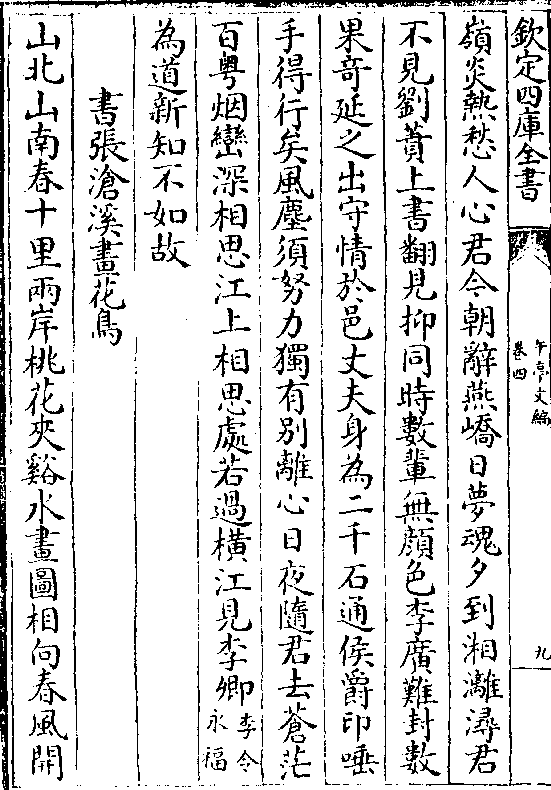 欽定四庫全書
午亭文編
卷四
九
嶺炎熱愁人心君今朝辭燕嶠日夢魂夕到湘灕潯君
不見劉蕡上書翻見抑同時數輩無顔色李廣難封數
果竒延之出守情於邑丈夫身為二千石通侯爵印唾
手得行矣風塵須努力獨有別離心日夜隨君去蒼茫
百粤烟巒深相思江上相思處若過橫江見李卿李令
永福
為道新知不如故
書張滄溪畫花鳥
山北山南春十里兩岸桃花夾谿水畫圖相向春風開